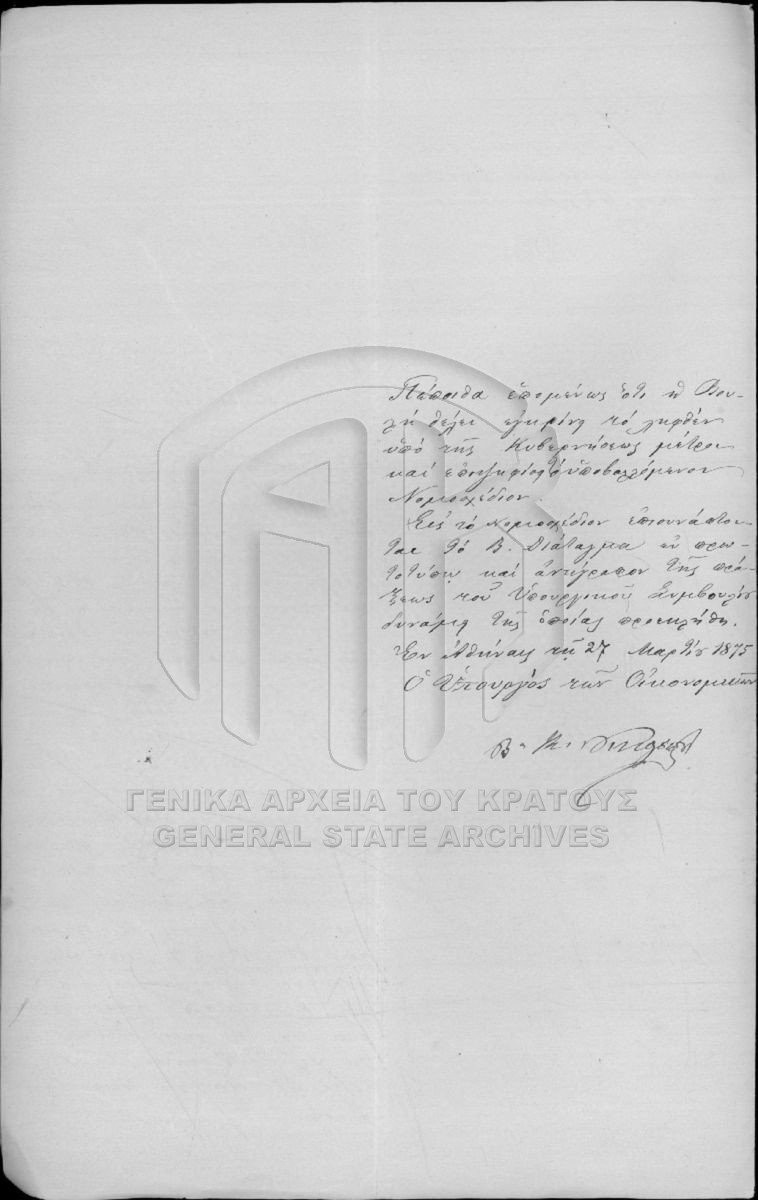 Πέποιθα ἑπομένως ὅτι ἡ Βου-
λὴ θέλει ἐγκρίνῃ τὸ ληφθὲν
ὑπὸ τῆς Κυβερνήσεως μέτρον
καὶ ἐπιψηφίσῃ τὸ ὑποβαλλόμενον
Νομοσχέδιον.
Εἰς τὸ Νομοσχέδιον ἐπισυνάπτον-
ται τὸ Β. Διάταγμα ἐν πρω-
τοτύπῳ καὶ ἀντίγραφον τῆς πρά-
ξεως τοῦ Ὑπουργικοῦ Συμβουλίου
δυνάμει τῆς ὁποίας προεκλήθη.
Ἐν Ἀθήναις τῇ 27 Μαρτίου 1875
Ὁ Ὑπουργὸς τῶν Οἰκονομικῶν
Β. Κ.
ΓΕΝΙΚΑ ΑΡΧΕΙΑ ΤΟΥ ΚΡΑΤΟΥΣ
GENERAL STATE ARCHIVES